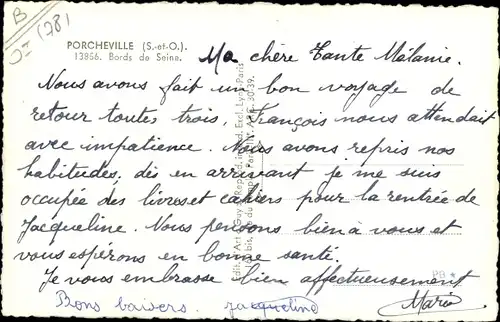 B
(78)
PORCHEVILLE (S.-et-O.).
13856. Bords de Seine.
Ma chère Tante Mélanie.
Nous avons fait un bon voyage de
retour toutes trois. François nous attendait
avec impatience. Nous avons repris nos
habitudes, dès en arrivant je me suis
occupée des livres et cahiers pour la rentrée de
Jacqueline. Nous pensons bien à vous et
vous espérons en bonne santé.
Je vous embrasse bien affectueusement
Marie
Bons baisers. Jacqueline
PB *